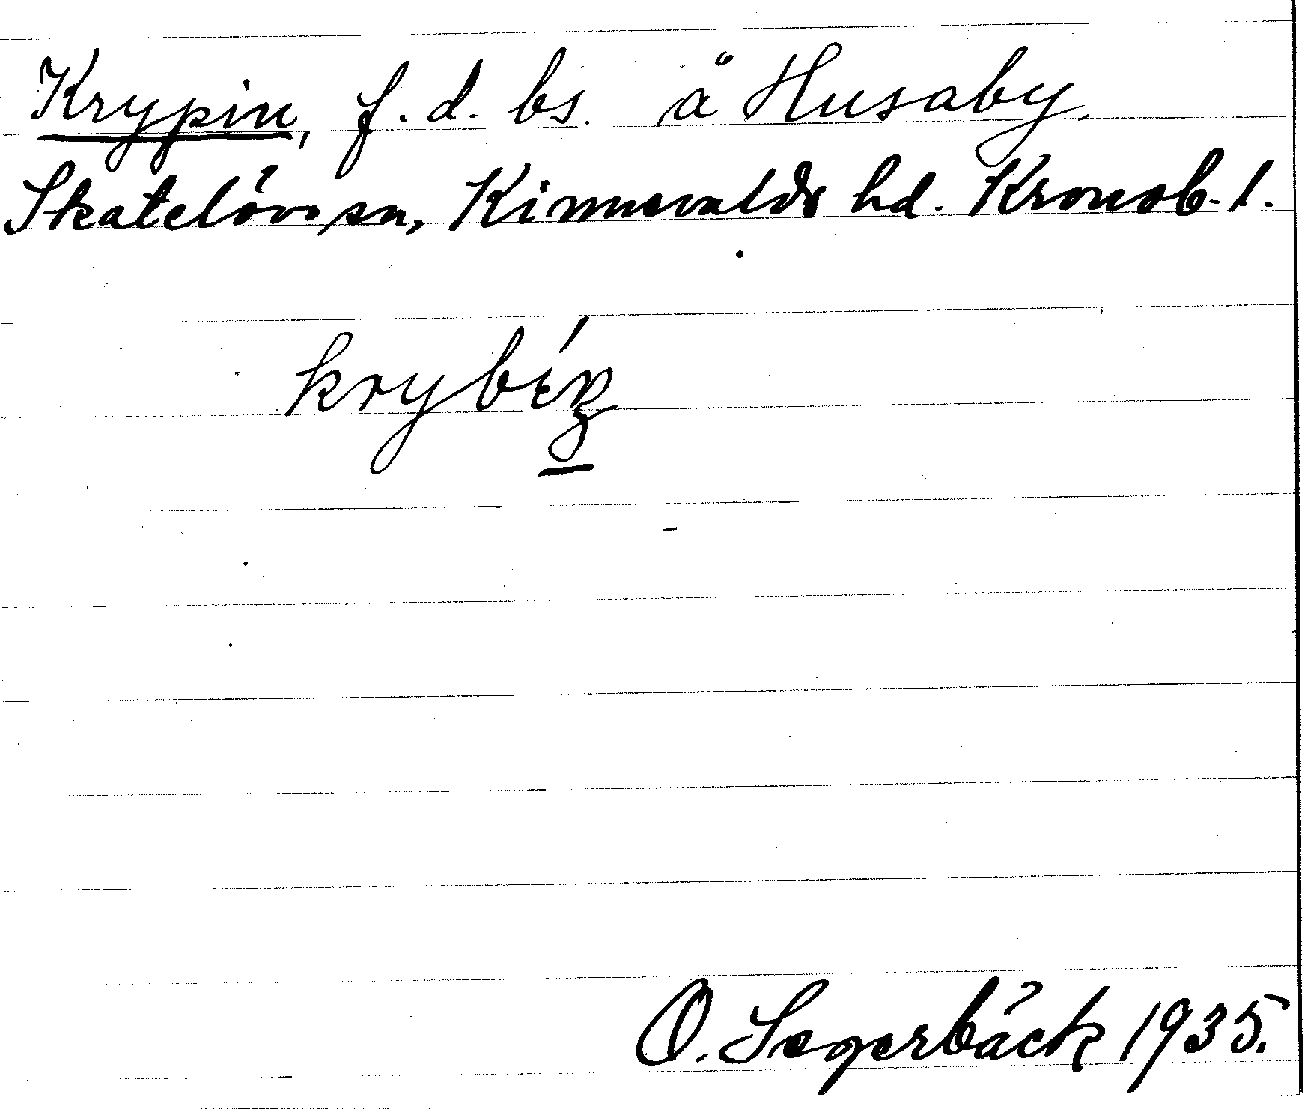 Krypin, f. d. bs. å Husaby
Skatelövs sn, Kinnevalds hd. Kronob. l.
O. Segerbäck 1935.